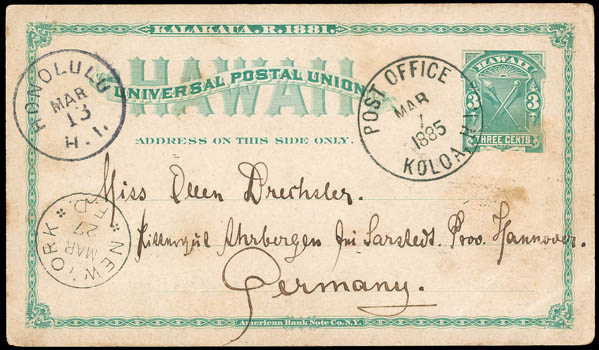 KALAKAUA.R.1881.
HAWAII
UNIVERSAL POSTAL UNION
ADDRESS ON THIS SIDE ONLY.
HONOLULU
MAR
13
H.I.
POST OFFICE
MAR
7
1885
KOLOA, H.I.
HAWAII
3 3
THREE CENTS
Miss Ellen Drechsler.
Rittergut Ahrbergen bei Sarstedt. Prov. Hannover.
Germany.
NEW YORK
MAR
27
F.D.
American Bank Note Co.N.Y.